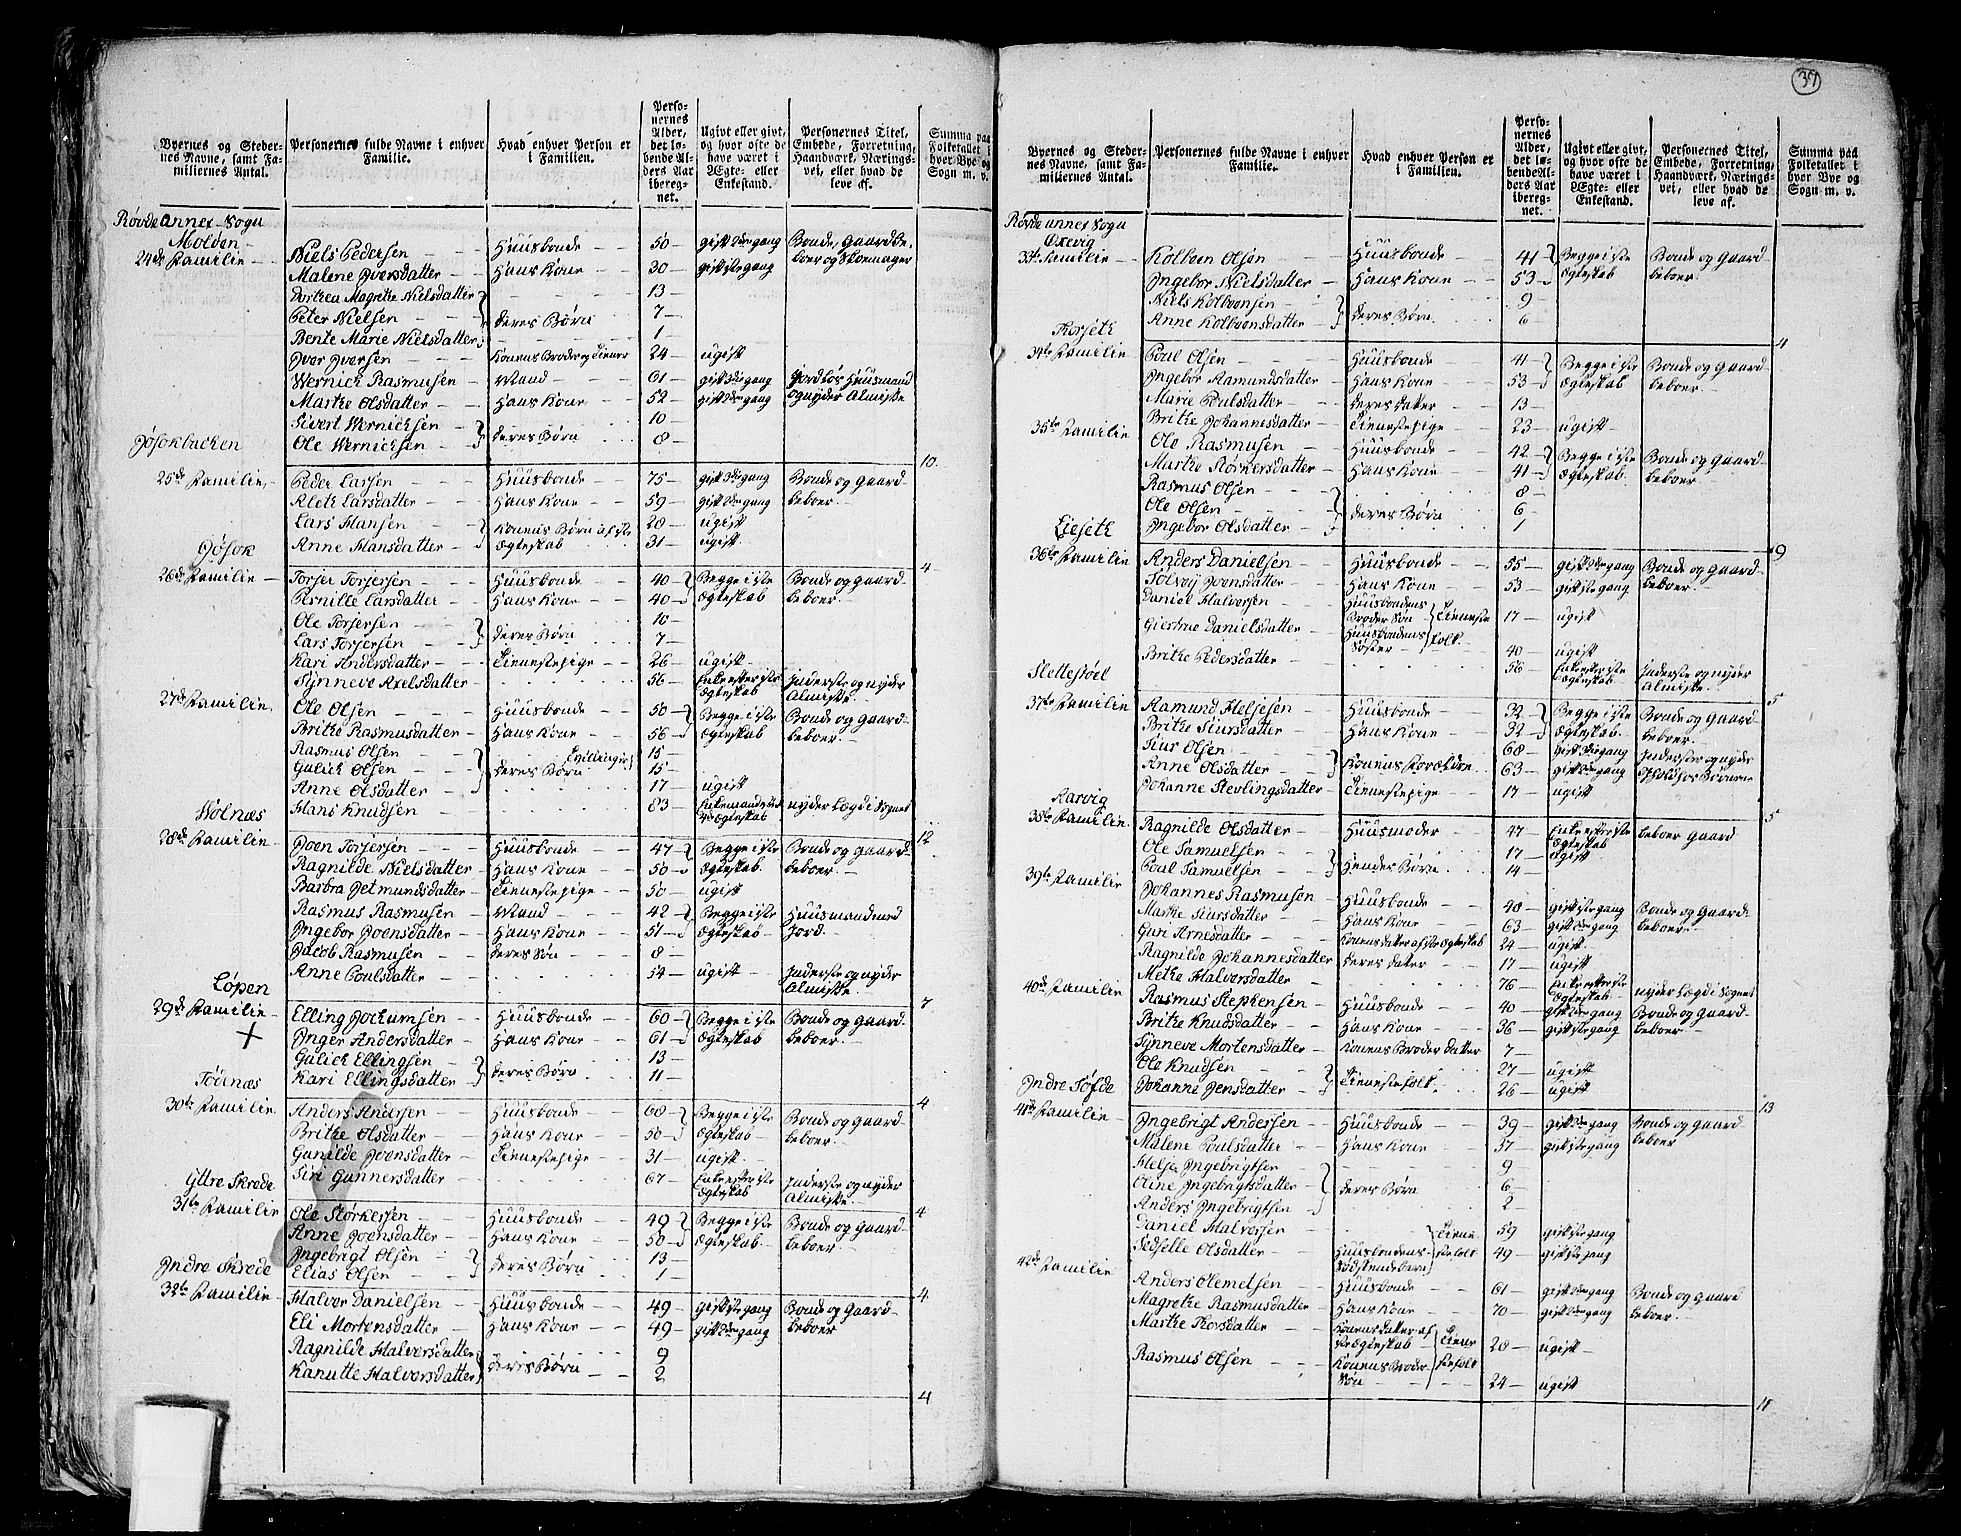 37
Byernes og Stedernes Navne, samt Familiernes Antal. | Personernes fulde Navne i enhver Familie. | Hvad enhver Person er i Familien. | Personernes Alder, det løbende Alders Aar iberegnet. | Ugivt eller givt, og hvor ofte de have været i Ægte- eller Enkestand. | Personernes Titel, Embede, Forretning, Haandværk, Næringsvei, eller hvad de leve af. | Summa paa Folketallet i hver Bye og Sogn m. v.
Røvde annex Sogn
Molden
24de Familie
Niels Pedersen | Huusbonde | 50 | gift 2den gang | Bonde, Gaardbeboer og Skoemager
Malene Iversdatter | Hans Kone | 30 | gift 1ste gang
Dorthea Magrethe Nielsdatter | 13
Peter Nielsen | deres Børn | 7
Bente Marie Nielsdatter | 1
Iver Iversen | Konens Broder og Tiener | 24 | ugift
Wernich Rasmusen | Mand | 61 | gift | Jordløs Huusmand og nyder Almisse
Marthe Olsdatter | Hans Kone | 52 | gift 2den gang
Sivert Wernichsen | 10
Ole Wernichsen | deres Børn | 8
Jøsokbacken | 10.
25de Familie
Peder Larsen | Huusbonde | 75 | gift gang | Bonde og Gaardbeboer
Aleth Larsdatter | Hans Kone | 59 | gift 2den gang
Lars Hansen | Konens Børn af 1ste Ægteskab | 28 | ugift
Anne Hansdatter | 31 | ugift
Jøsok | 4
26de Familie
Torjer Torjersen | Huusbonde | 40 | Begge i 1ste Ægteskab | Bonde og Gaardbeboer
Pernille Larsdatter | Hans Kone | 40
Ole Torjersen | 10
Lars Torjersen | deres Børn | 7
Kari Andersdatter | Tienestepige | 26 | ugift
Synneve Axelsdatter | 56 | Enke efter 1ste Ægteskab | Inderste og nyder Almisse
27de Familie
Ole Olsen | Huusbonde | 50 | Begge i 1ste Ægteskab | Bonde og Gaardbeboer
Brithe Rasmusdatter | Hans Kone | 56
Rasmus Olsen | Tvillinger | 15
Gulich Olsen | deres Børn | 15
Anne Olsdatter | 17 | ugift
Hans Knudsen | 83 | Enkemand Ægteskab | nyder Lægd i Sognet
Wolnæs | 12
28de Familie
Joen Torjersen | Huusbonde | 47 | Begge i 1ste Ægteskab | Bonde og Gaardbeboer
Ragnilde Nielsdatter | Hans Kone | 50
Barbra Jetmundsdatter | Tienestepige | 50 | ugift
Rasmus Rasmusen | Mand | 42 | Begge i 1ste Ægteskab | Huusmand med Jord
Ingebor Joensdatter | Hans Kone | 51
Jacob Rasmusen | deres Søn | 8
Anne Poulsdatter | 54 | ugift | Inderste og nyder Almisse
Løpen | 7
29de Familie
Elling Jochumsen | Huusbonde | 60 | Begge i 1ste Ægteskab | Bonde og Gaardbeboer
Inger Andersdatter | Hans Kone | 61
Gulich Ellingsen | 13
Kari Ellingsdatter | deres Børn | 11
Tødenæs | 4
30te Familie
Anders Andersen | Huusbonde | 68 | Begge i 1ste Ægteskab | Bonde og Gaardbeboer
Brithe Olsdatter | Hans Kone | 50
Gunilde Joensdatter | Tienestepige | 31 | ugift
Siri Gunnersdatter | 67 | Enke efter 1ste Ægteskab | Inderste og nyder Almisse
Yttre Skrede | 4
31te Familie
Ole Størkersen | Huusbonde | 49 | Begge i 1ste Ægteskab | Bonde og Gaardbeboer
Anne Joensdatter | Hans Kone | 50
Ingebrigt Olsen | 13
Elias Olsen | deres Børn | 1
Indre Skrede | 4
32te Familie
Halvor Danielsen | Huusbonde | 49 | gift 1ste gang | Bonde og Gaardbeboer
Eli Mortensdatter | Hans Kone | 49 | gift 2den gang
Ragnilde Halvorsdatter | 9
Kanutte Halvorsdatter | deres Børn | 2
4
Byernes og Stedernes Navne, samt Familiernes Antal. | Personernes fulde Navne i enhver Familie. | Hvad enhver Person er i Familien. | Personernes Alder, det løbende Alders Aar iberegnet. | Ugivt eller givt, og hvor ofte de have været i Ægte- eller Enkestand. | Personernes Titel, Embede, Forretning, Haandværk, Næringsvei, eller hvad de leve af. | Summa paa Folketallet i hver Bye og Sogn m. v.
Røvde annex Sogn
Oxevig
33te Familie
Kolbeen Olsen | Huusbonde | 41 | Begge i 1ste Ægteskab | Bonde og Gaardbeboer
Ingebor Nielsdatter | Hans Kone | 53
Niels Kolbeensen | 9
Anne Kolbeensdatter | deres Børn | 6
Thorseth | 4
34te Familie
Poul Olsen | Huusbonde | 41 | Begge i 1ste Ægteskab | Bonde og Gaardbeboer
Ingebor Aamundsdatter | Hans Kone | 53
Marie Poulsdatter | deres Datter | 13
Brithe Johannesdatter | Tienestepige | 23 | ugift
35te Familie
Ole Rasmusen | Huusbonde | 42 | Begge i 1ste Ægteskab | Bonde og Gaardbeboer
Marthe Størkersdatter | Hans Kone | 41
Rasmus Olsen | 8
Ole Olsen | deres Børn | 6
Ingebor Olsdatter | 1
Lieseth | 9
36te Familie
Anders Danielsen | Huusbonde | 55 | gift 2den gang | Bonde og Gaardbeboer
Solvøy Joensdatter | Hans Kone | 53 | gift 1ste gang
Daniel Halvorsen | Huusbondens Broder Søn | Tienestefolk | 17 | ugift
Giertrue Danielsdatter | Huusbondens Søster | 40 | ugift
Brithe Pedersdatter | 56 | Enke efter 1ste Ægteskab | Inderste og nyder Almisse
Slettestøel | 5
37te Familie
Aamund Helsesen | Huusbonde | 32 | Begge i 1ste Ægteskab | Bonde og Gaardbeboer
Brithe Siursdatter | Hans Kone | 32
Siur Olsen | 68 | gift gang | Inderster og nyder Ophold hos Børnene
Anne Olsdatter | Konens Forældre | 63 | gift 2den gang
Johanne Stevlingsdatter | Tienestepige | 17 | ugift
Aarvig | 5
38te Familie
Ragnilde Olsdatter | Huusmoder | 47 | Enke efter 1ste Ægteskab | beboer Gaard
Ole Samuelsen | 17 | ugift
Poul Samuelsen | hendes Børn | 14
39te Familie
Johannes Rasmusen | Huusbonde | 48 | gift 1ste gang | Bonde og Gaardbeboer
Marthe Siursdatter | Hans Kone | 63 | gift 2den gang
Guri Arnesdatter | Konens datter af 1ste Ægteskab | 24 | ugift
Ragnilde Johannesdatter | deres datter | 17 | ugift
Methe Halvorsdatter | 76 | Enke efter 1ste Ægteskab | nyder Lægd i Sognet
40de Familie
Rasmus Stephensen | Huusbonde | 40 | gift 2den gang | Bonde og Gaardbeboer
Brithe Knudsdatter | Hans Kone | 36 | gift 1ste gang
Synneve Mortensdatter | Konens Broder datter | 7
Ole Knudsen | 27 | ugift
Johanne Jensdatter | Tienestefolk | 26 | ugift
Indre Søfde | 13
41de Familie
Ingebrigt Andersen | Huusbonde | 39 | gift 2den gang | Bonde og Gaardbeboer
Malene Poulsdatter | Hans Kone | 37 | gift 1ste gang
Helse Ingebrigtsen | 9
Eline Ingebrigtsdatter | deres Børn | 6
Anders Ingebrigtsen | 2
Daniel Halvorsen | Tienestefolk | 59 | gift 1ste gang
Sedselle Olsdatter | Huusbondens Sødskendebern | 49 | gift 1ste gang
42de Familie
Anders Olemelsen | Huusbonde | 61 | gift 2den gang | Bonde og Gaardbeboer
Magrethe Rasmusdatter | Hans Kone | 70 | gift 2den gang
Marthe Thorsdatter | Konens datter af 1ste Ægteskab | Tienestefolk | 28 | ugift
Rasmus Olsen | Konens Broder Søn | 24 | ugift
11